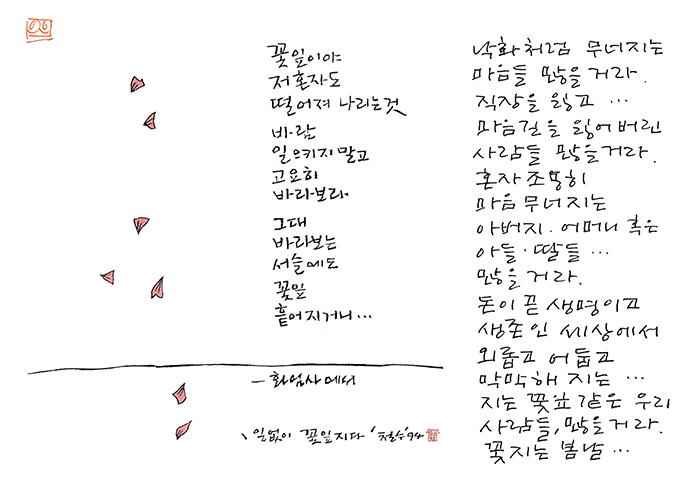 꽃잎이야
저 혼자도
떨어져 나리는 것
바람
일으키지 말고
고요히
바라보라.
그대
바라보는
서슬에도
꽃잎
흩어지거니…
— 화엄사에서
\ 일없이 꽃잎지다 '철수 '94
낙화처럼 무너지는
마음들 많을거라.
직장을 잃고 …
마음길을 잃어버린
사람들 많을거라.
혼자 조용히
마음 무너지는
아버지 · 어머니 혹은
아들 · 딸들 …
많을거라.
돈이 곧 생명이고
생존인 세상에서
외롭고 어둡고
막막해 지는 …
지는 꽃잎 같은 우리
사람들, 많을거라.
꽃지는 봄날 …